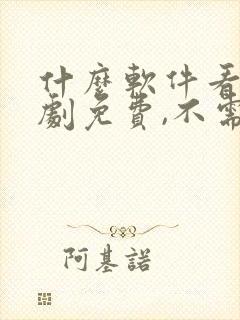 什麼軟件看
劇免費,不需
阿基諾